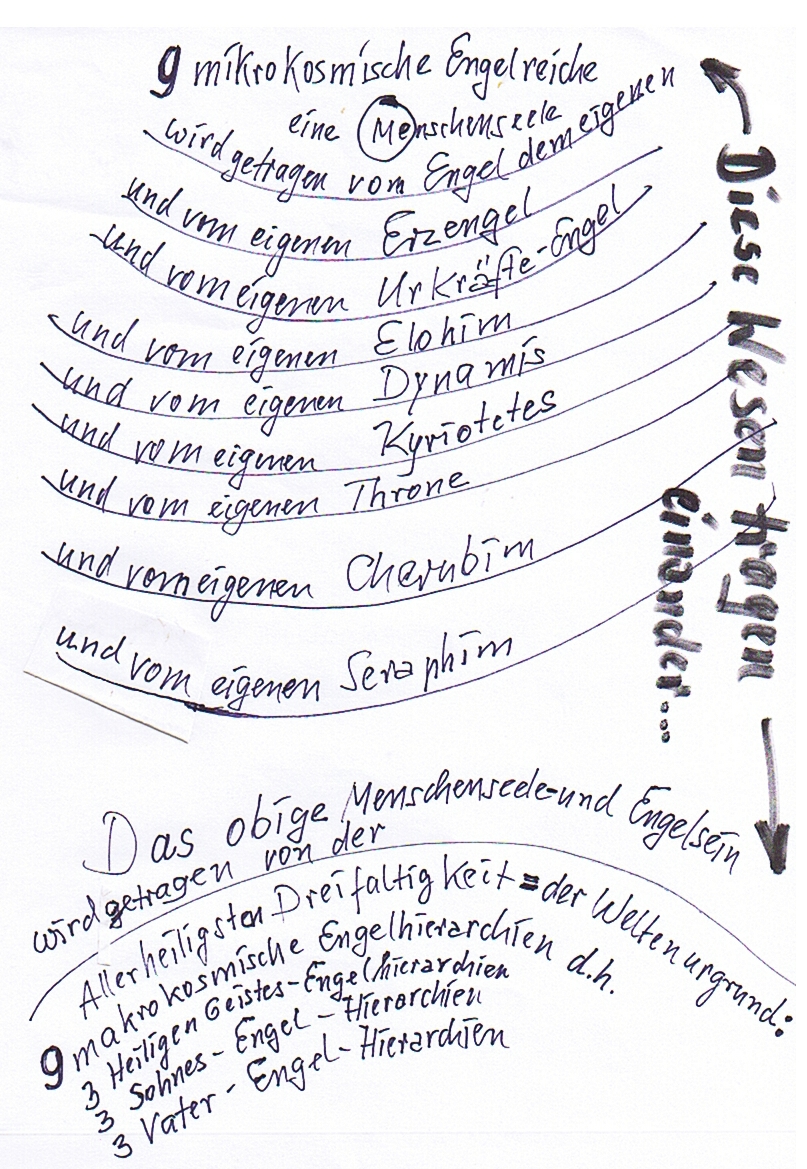 9 mikrokosmische Engelreiche
eine Menschenseele
wird getragen vom Engel dem eigenen
und vom eigenen Erzengel
und vom eigenen Urkräfte-Engel
und vom eigenen Elohim
und vom eigenen Dynamis
und vom eigenen Kyriotetes
und vom eigenen Throne
und vom eigenen Cherubim
und vom eigenen Seraphim
Diese Wesen tragen
einander...
Das obige Menschenseele-und Engelsein
wird getragen von der
Allerheiligsten Dreifaltigkeit = der Weltenurgrund:
9 makrokosmische Engelhierarchien d.h.
3 Heiligen Geistes-Engelhierarchien
3 Sohnes-Engel-Hierarchien
3 Vater-Engel-Hierarchien